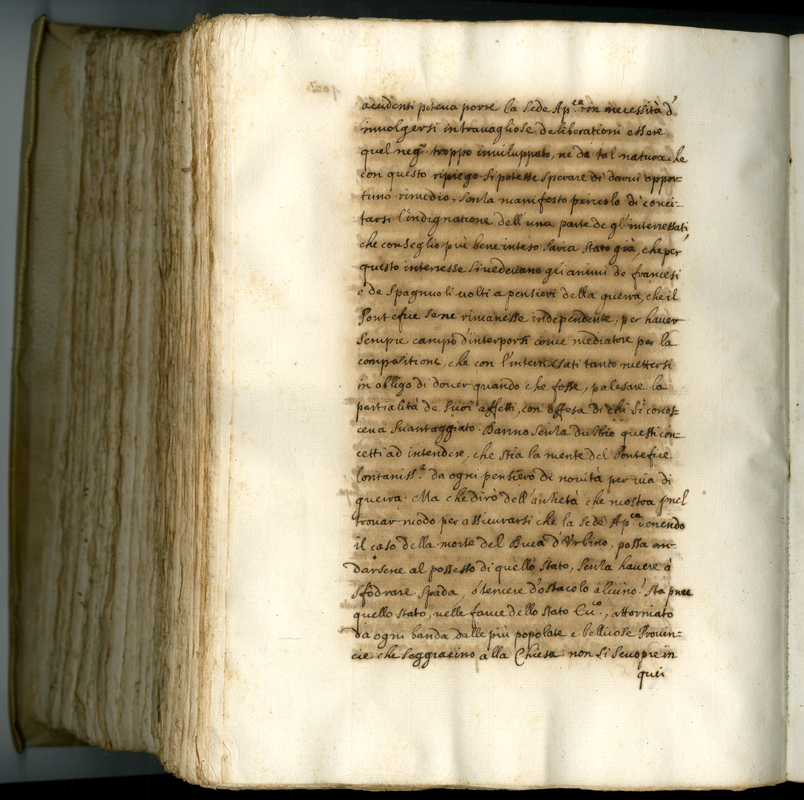 accidenti poteva porre la Sede Ap.ca in necessità d'
involgersi in travagliose deliberationi essere
quel neg.o troppo inviluppato, nè da tal natura che
con questo ripiego si potesse sperare di darvi oppor=
tuno rimedio, senza manifesto pericolo di conci=
tarsi l'indignatione dell'una parte de gl'interessati
che conseglio più bene inteso saria stato già, che per
questo interesse si vedevano gli animi de francesi
e de Spagnuoli volti a pensieri della guerra, che il
Pontefice se ne rimanesse independente, per haver
sempre campo d'interporsi come mediatore per la
compositione, che con l'interessati tanto mettersi
in obligo di dover quando che fosse, palesare la
partialità de suoi affetti, con offesa di chi si conos=
ceva svantaggiato. Hanno senza dubbio questi con=
cetti ad intendere, che stia la mente del Pontefice
lontaniss.a da ogni pensiero di novità per via di
guerra. Ma che dirò dell'anzietà che mostra
trovar modo per assicurarsi che la Sede Ap.ca venendo
il caso della morte del Duca d'Urbino, possa an=
darsene al possesso di quello stato, senza havere à
sfodrare spada, ò temere d'ostacolo alcuno! Sta
quello stato, nelle fauce dello stato Ecc.o, attorniato
da ogni banda dalle più popolate e bellicose Provin=
cie che soggiacino alla Chiesa: non si scuopre in
quei